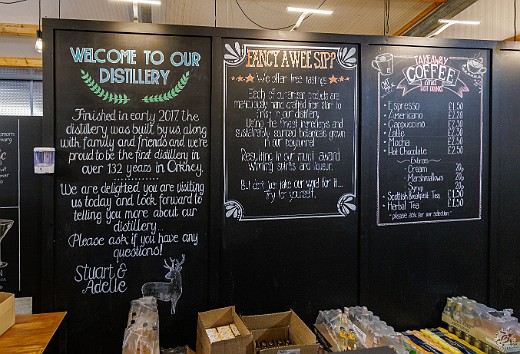 WELCOME TO OUR
DISTILLERY
Finished in early 2017 the
distillery was built by us along
with family and friends and we're
proud to be the first distillery in
over 132 years in Orkney.
We are delighted you are visiting
us today and look forward to
telling you more about our
distillery.
Please ask if you have any
questions!
Stuart &
Adelle
FANCY A WEE SIP?
We offer free tastings
Each of our artisan products are
meticulously hand crafted from start to
finish in our distillery
Using the finest ingredients and
sustainably sourced botanicals grown
in our
Resulting in our multi award
winning spirits and liqueur.
But don't just take our word for it...
try for yourself.
TAKEAWAY
COFFEE
& OTHER
HOT DRINKS
Espresso £1.50
Americano £2.20
Cappuccino
Latte
Mocha
Hot Chocolate £2.50
Extras
Cream 20p
Marshmallows 20p
Syrup
Scottish Breakfast Tea £1.50
Herbal Tea £2.50
please ask for our selection